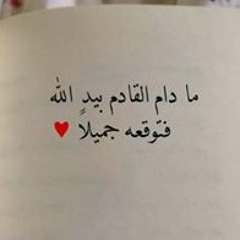 ما دام القادم بيدِ الله
فتوقعه جميلاً ♥